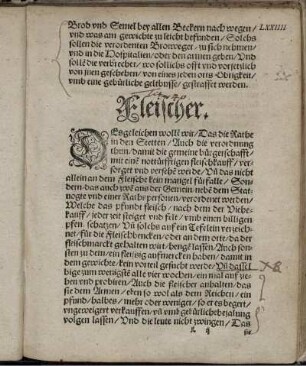 Brod vnd Semel bey allen Beckern nach wegen / LXXIIII
vnd was am gewichte zu leicht befunden / Solchs
sollen die verordenten Brotweger / zu sich nehmen /
vnd in die Hospitalien / oder den armen geben / Vnd
soll die verbrecher / wo solchs offt vnd vorsetzlich
von jnen geschehen / von eines jeden orts Obrigkeit /
vmb eine gebürliche geltbusse / gestraffet werden.
Fleischer.
DEsgeleichen wolln wir / Das die Rathe
in den Stetten / Auch die verordnung
thun / damit die gemeine bürgerschafft /
mit eine notturfftigen fleischkauff / ver-
sorget vnd versehe werde / Vn das nicht
allein an dem Fleische kein mangel fürfalle / Son-
dern das auch zwe aus der Gemein nebe dem Stat-
uogte vnd einer Rathsperson verordenet werden /
Welche das pfundt fleisch / nach dem der Viehe-
kauff / jeder zeit steiget vnd felt / vmb einen billigen
pfen. schatzen / Vn solchs auff ein Tefelein verzeich-
net / für die Fleischbencken / oder an dem orte / da der
fleischmarckt gehalten wirt / hengen lassen Auch son-
sten zu dem / ein fleissig auffmercken haben / damit in
dem gewichte / kein vorteil gesucht werde / Vn das sel-
bige zum wenigste alle vier wochen / ein mal auff zie-
hen vnd probiren / Auch die fleischer anhalten / das
sie dem Armen / eben so wol als dem Reichen / ein
pfund / halbes / mehr oder weniger / so er es begert /
vngeweigert verkauffen / vn vmb gebürliche bezalung
volgen lassen / Vnd die leute nicht zwingen / Das
sie